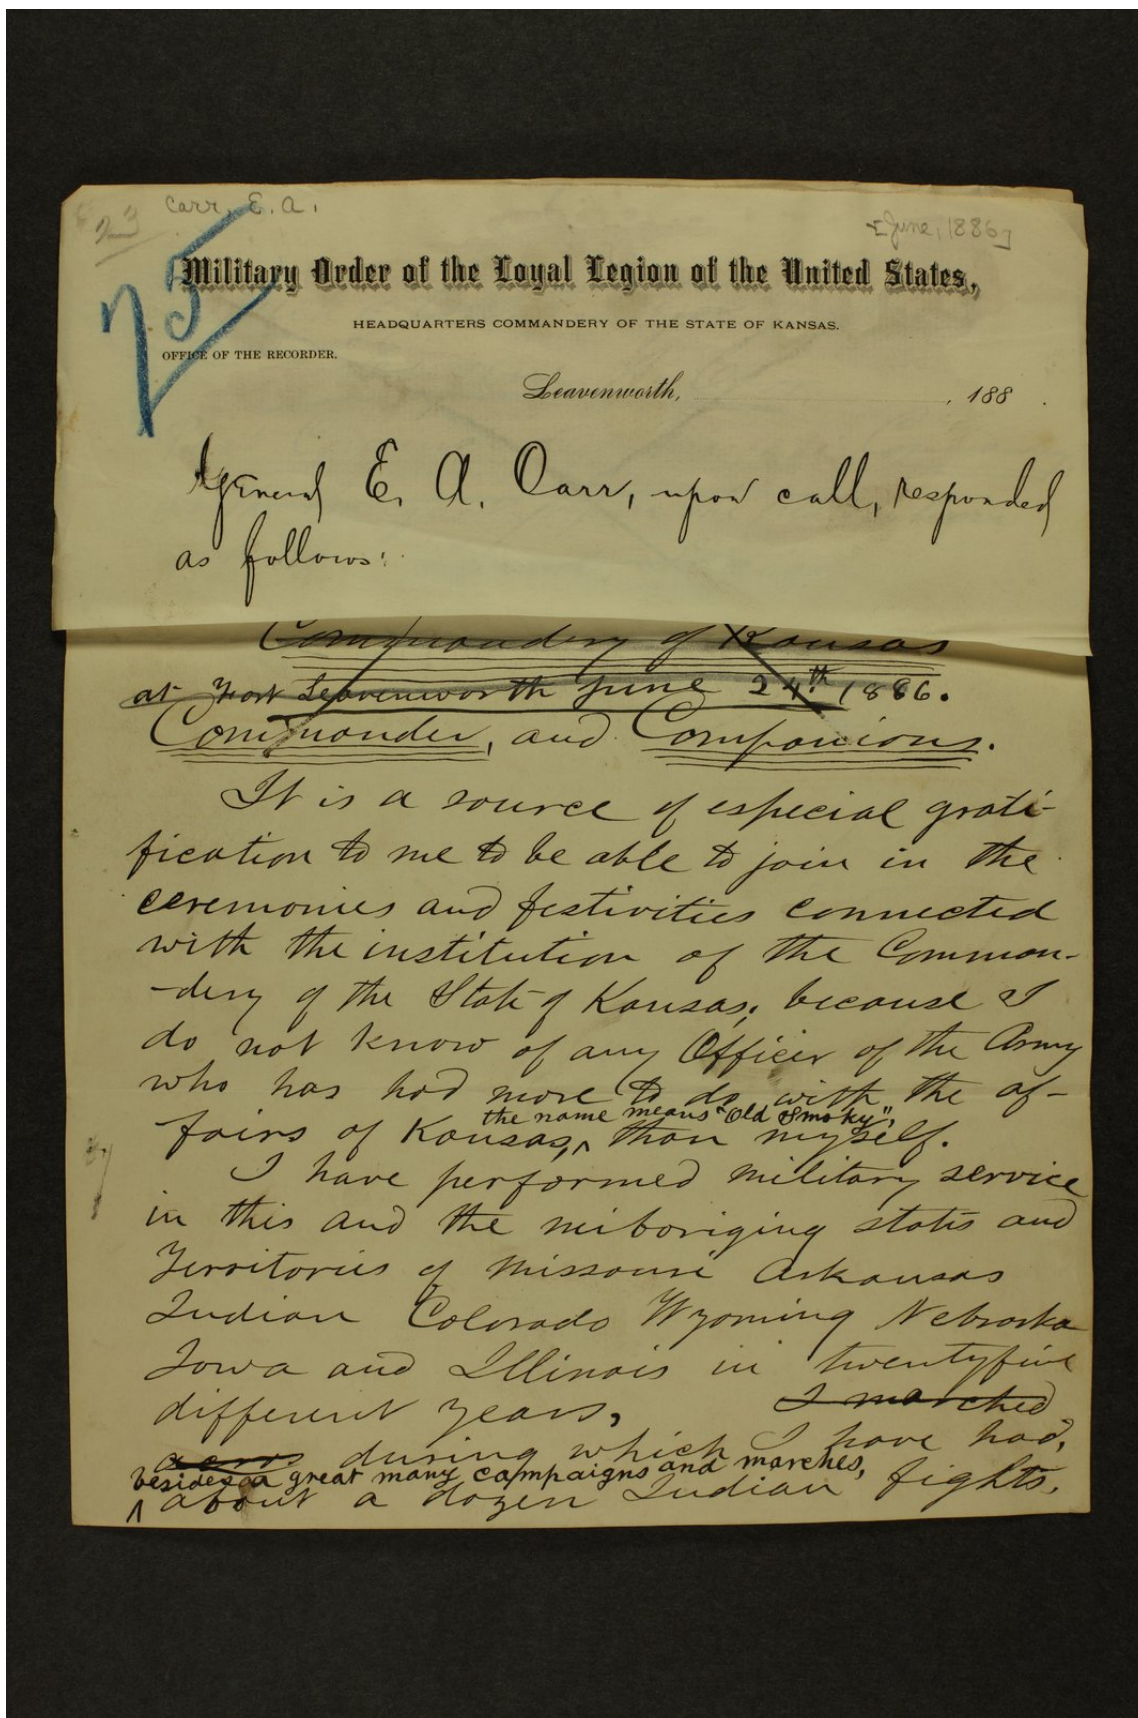 23
Carr, E. A.
[June, 1886]
Military Order of the Loyal Legion of the United States,
HEADQUARTERS COMMANDERY OF THE STATE OF KANSAS.
OFFICE OF THE RECORDER.
Leavenworth, , 188 .
General E. A. Carr, upon call, responded
as follows:
Commandery of Kansas
at Fort Leavenworth June 24th 1886.
Commander, and Companions.
It is a source of especial grati-
fication to me to be able to join in the
ceremonies and festivities connected
with the institution of the Comman-
-dery of the State of Kansas; because I
do not know of any Officer of the Army
who has had more to do with the af-
the name means "Old Smoky",
fairs of Kansas, ^ than myself.
I have performed military service
in this and the neiboriging states and
Territories of Missouri Arkansas
Indian Colorado Wyoming Nebraska
Iowa and Illinois in twentyfive
different years, I marched
during which I have had,
besides a great many campaigns and marches,
^ about a dozen Indian fights.